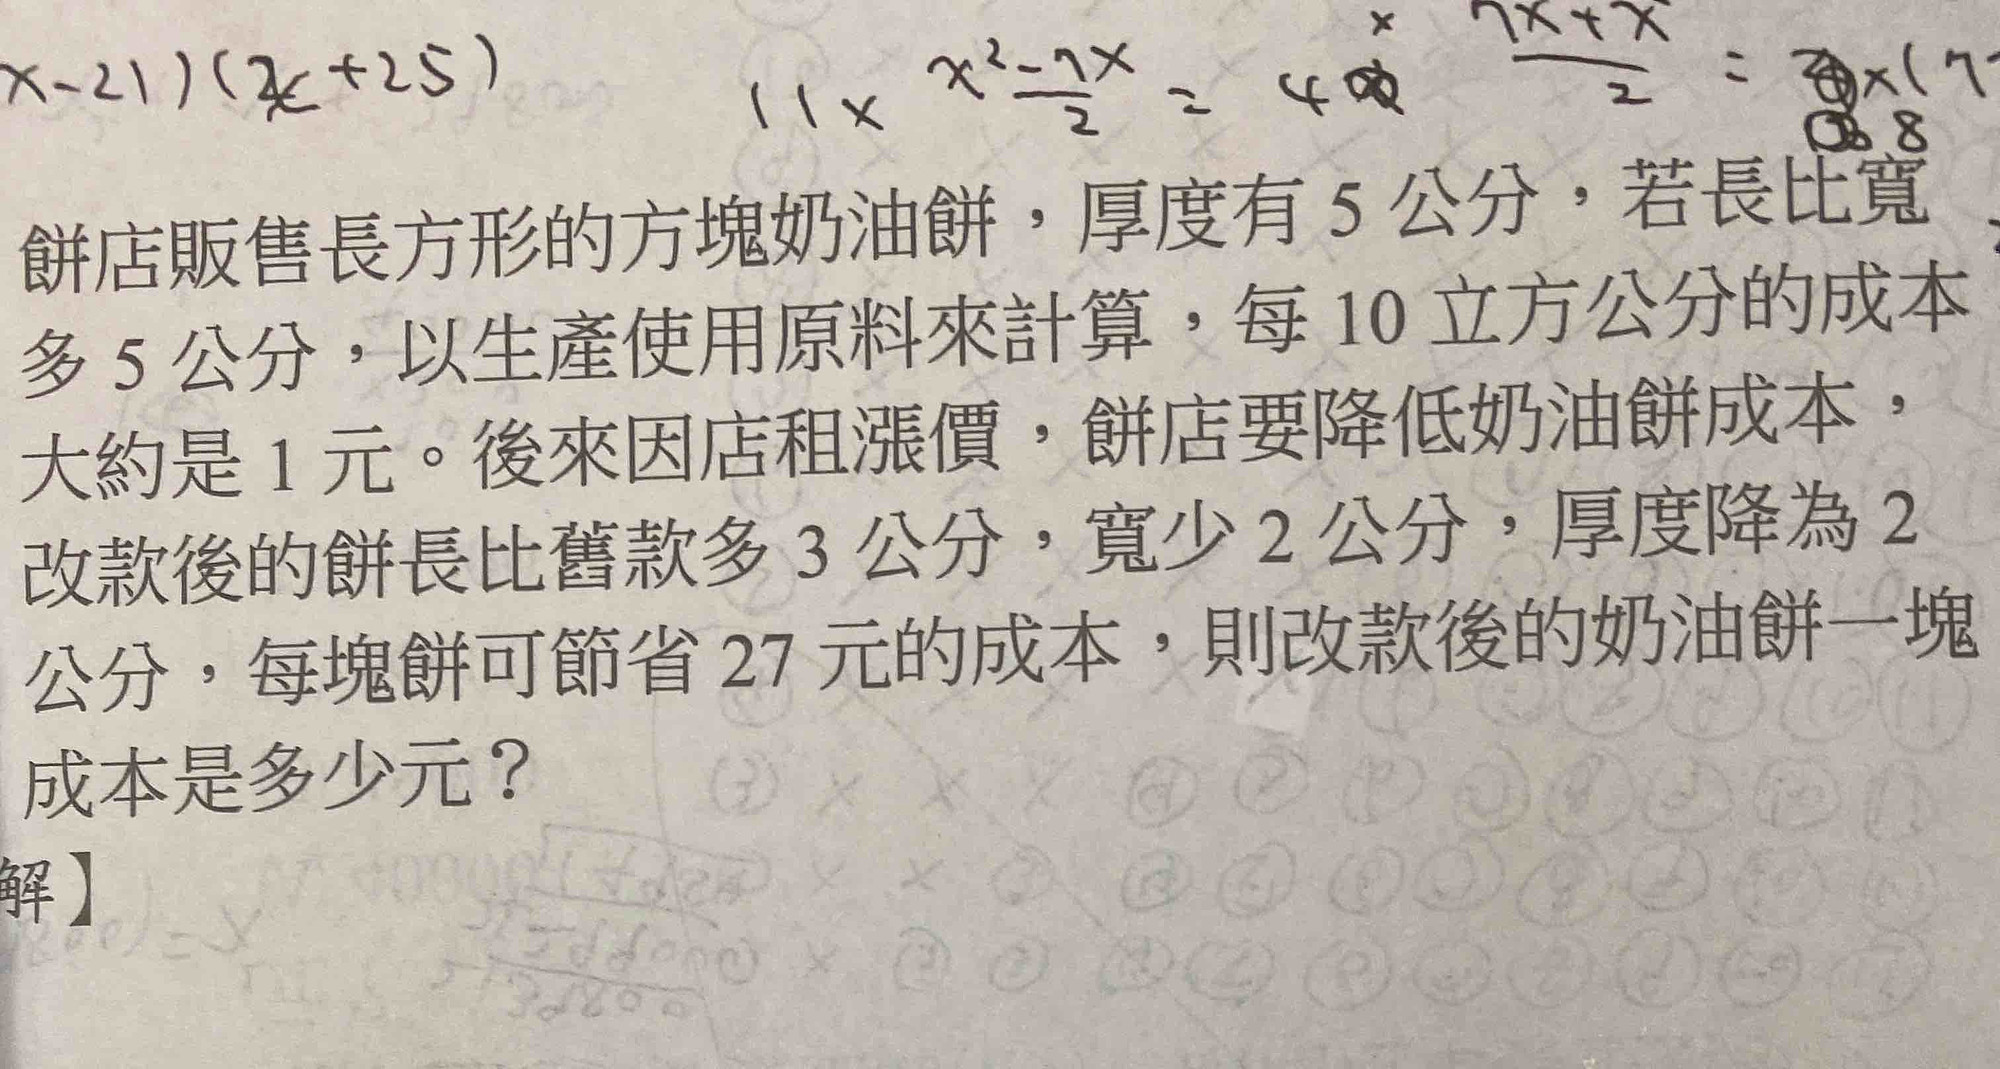 x-21)(x+25)
11x x²-7x/2 = 40
7x+x/2 =
餅店販售長方形的方塊奶油餅，厚度有 5 公分，若長比寬
多 5 公分，以生產使用原料來計算，每 10 立方公分的成本
大約是 1 元。後來因店租漲價，餅店要降低奶油餅成本，
改款後的餅長比舊款多 3 公分，寬少 2 公分，厚度降為 2
公分，每塊餅可節省 27 元的成本，則改款後的奶油餅一塊
成本是多少元？
解】